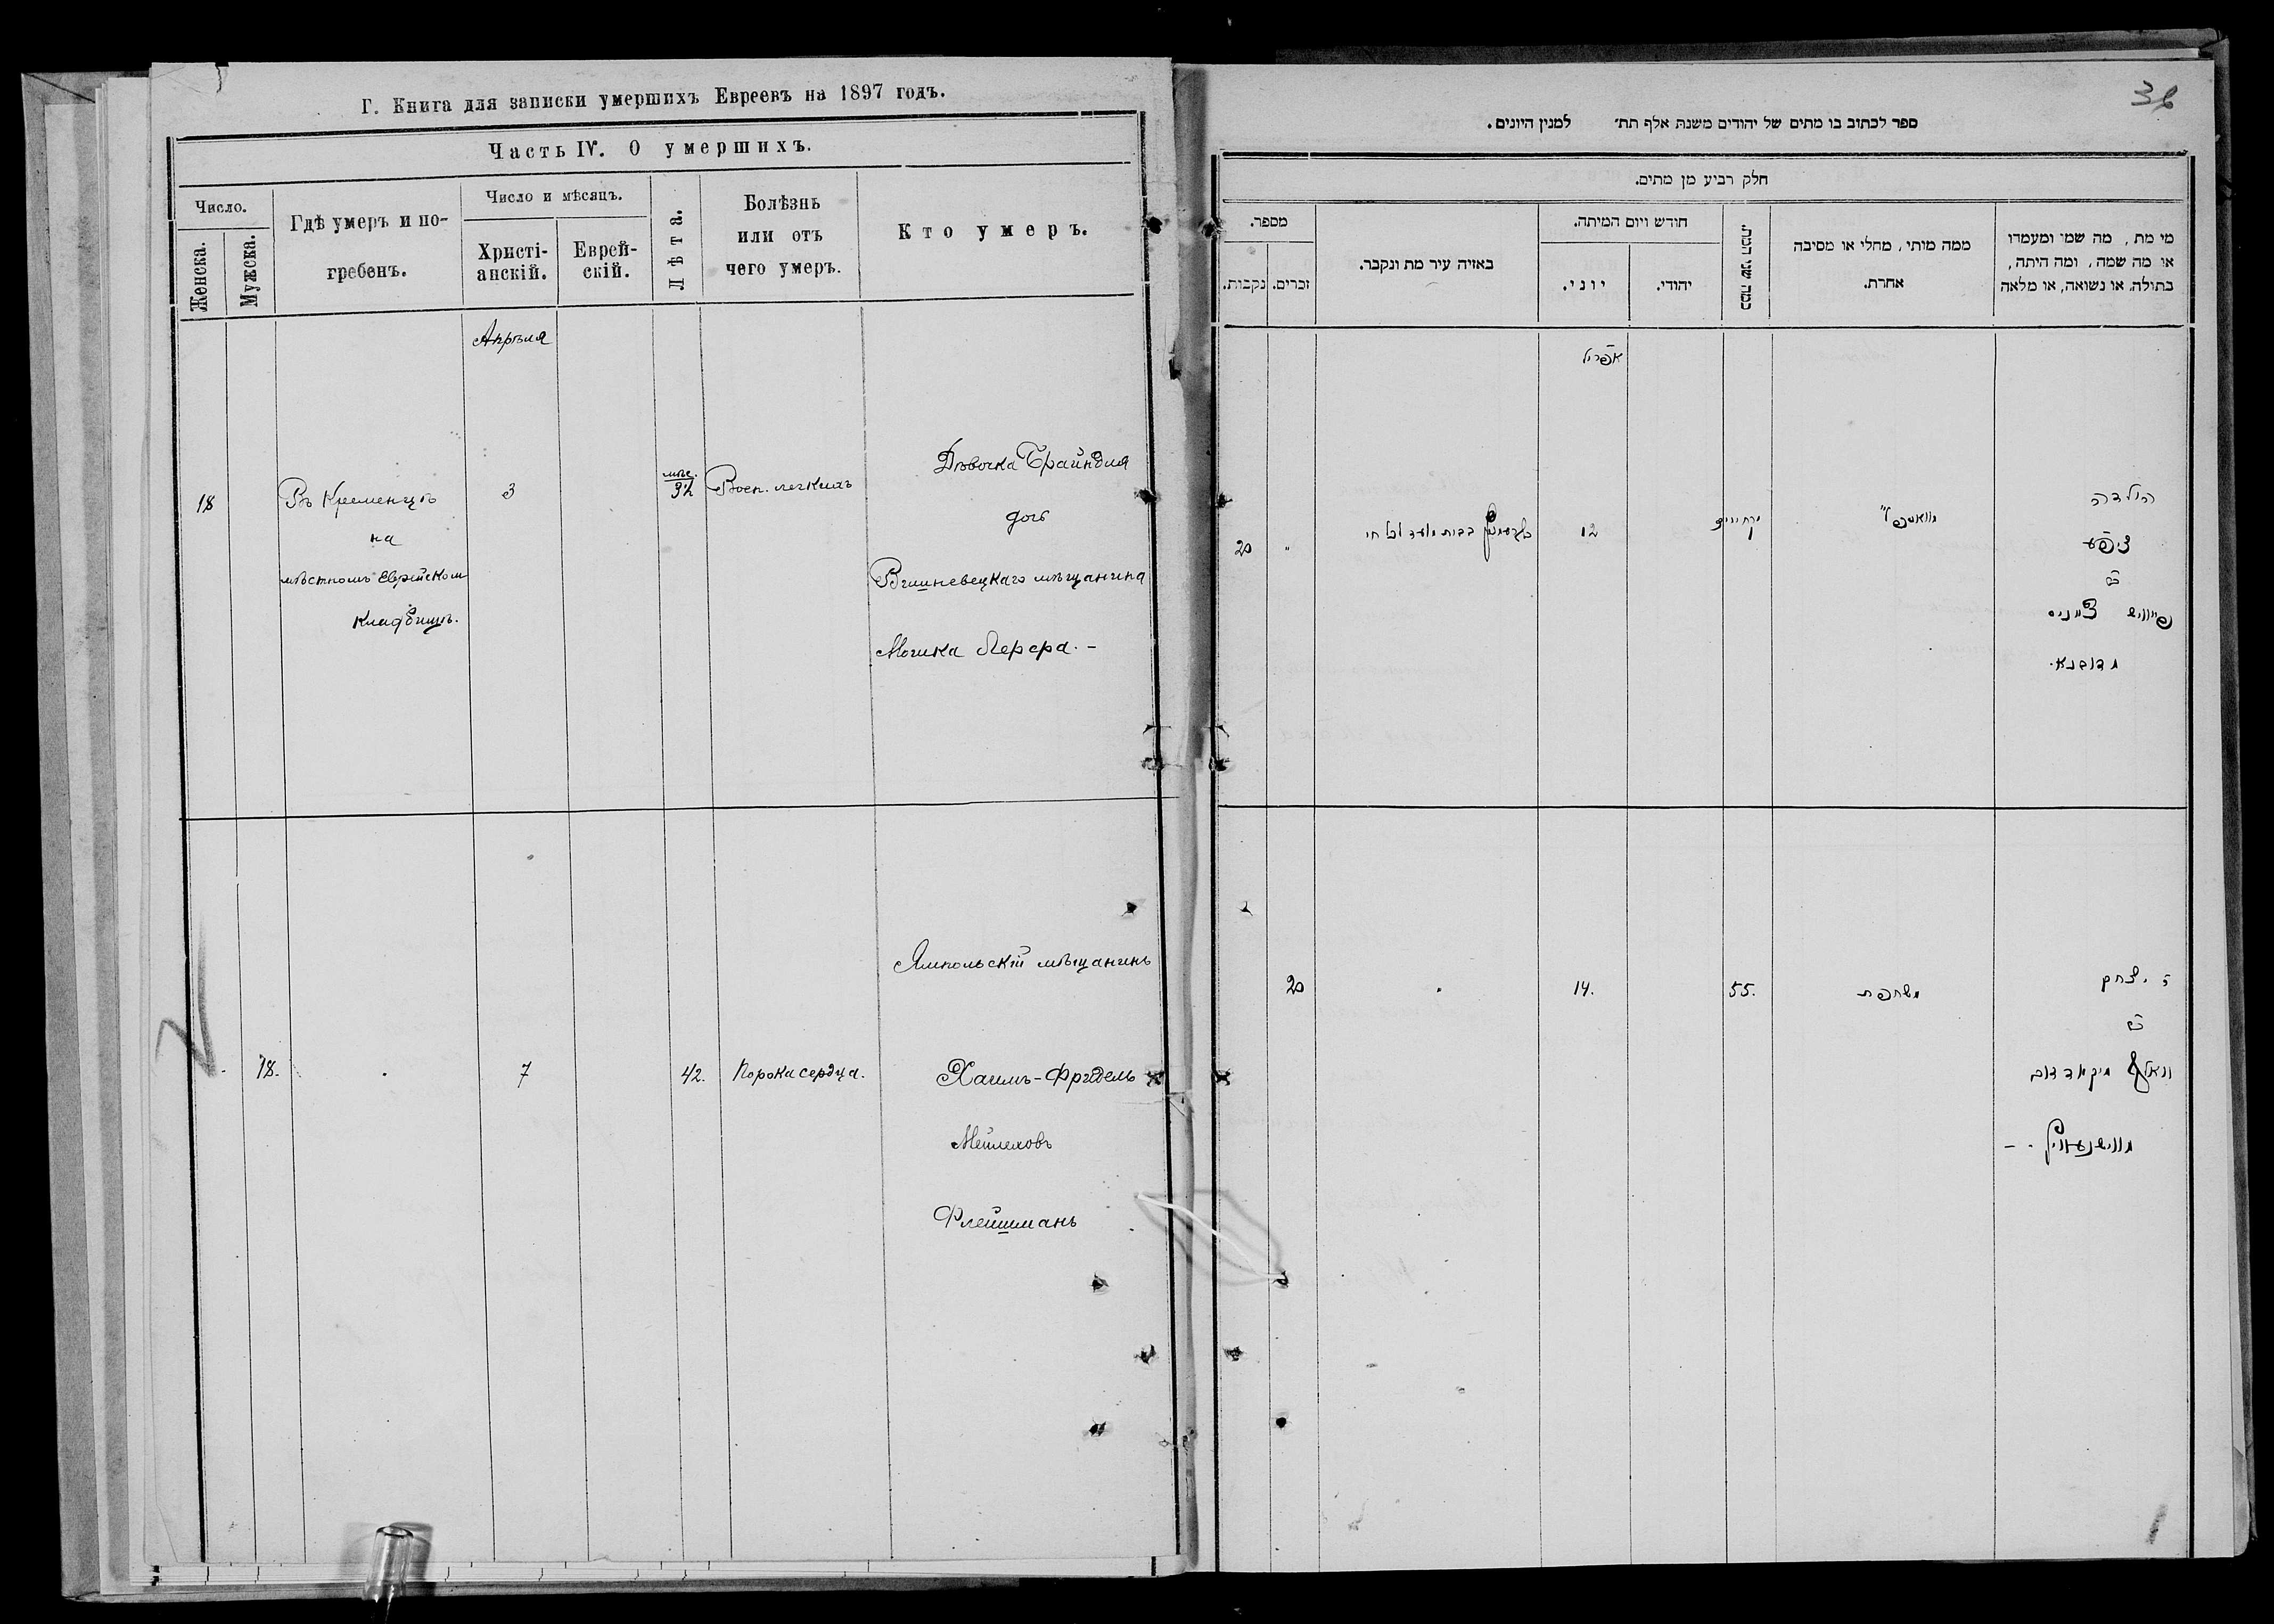 Г. Книга для записки умершихъ Евреевъ на 1897 годъ.
Часть IV. О умершихъ.
Число.
Женска.
Мужска.
Гдѣ умеръ и по-
гребенъ.
Число и мѣсяцъ.
Христі-
анскій.
Еврей-
скій.
Лѣта.
Болѣзнь
или отъ
чего умеръ.
Кто умеръ.
Апрѣля
18
Въ Кременцѣ
на
мѣстномъ Еврейском
кладбищѣ.
3
мѣс.
Восп. легкихъ
Дѣвочка Брайндля
дочь
Вишневецкаго мѣщанина
Мошка Лернера. -
18.
7
42.
Порока сердца.
Ямпольскій мѣщанинъ
Хаимъ-Фридель
Мейлеховъ
Флейшманъ
36
ספר לכתוב בו מתים של יהודים משנת אלף תת׳ למנין היונים.
חלק רביע מן מתים.
מספר.
נקבות.
זכרים.
באזיה עיר מת ונקבר.
חודש ויום המיתה.
יוני.
יהודי.
כמה שני המת.
ממה מותי, מחלי או מסיבה
אחרת.
מי מת, מה שמו ומעמדו
או מה שמה, ומה היתה,
בתולה, או נשואה, או מלאה
אפריל
20
"
בבית מועד לכל חי
12
הילדה
ציפע
פייוויש
מדובנא.
20
14.
55.
משחפת
ר׳ יצחק
וואלף